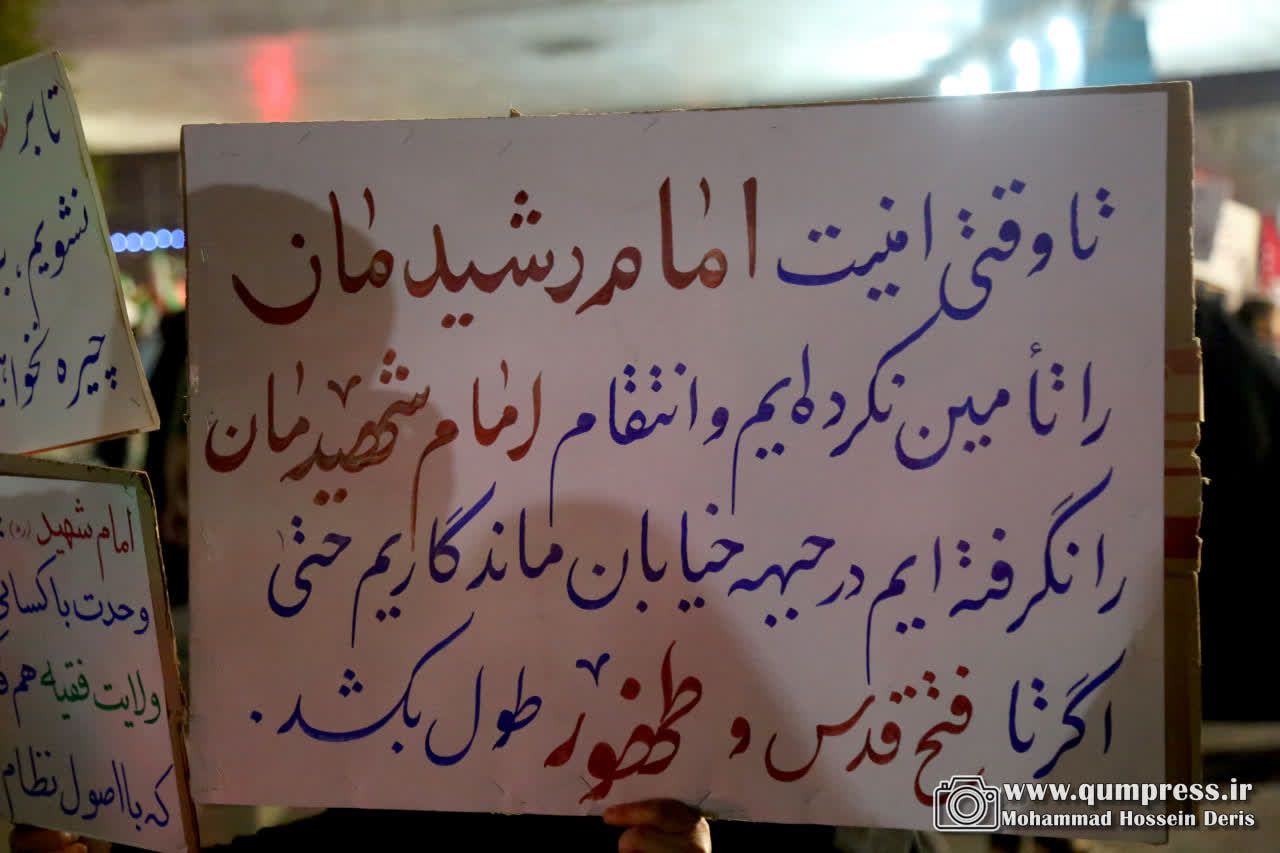 تا وقتی امنیت امام رشیدمان
را تأمین نکرده‌ایم و انتقام امام شهیدمان
را نگرفته ایم در جبهه خیابان ماندگاریم حتی
اگر تا فتح قدس و ظهور طول بکشد.
تا بر
نشویم،
چیره نخواه
امام شهید (ره):
وحدت با کسانی
ولایت فقیه هم
که با اصول نظام
www.qumpress.ir
Mohammad Hossein Deris